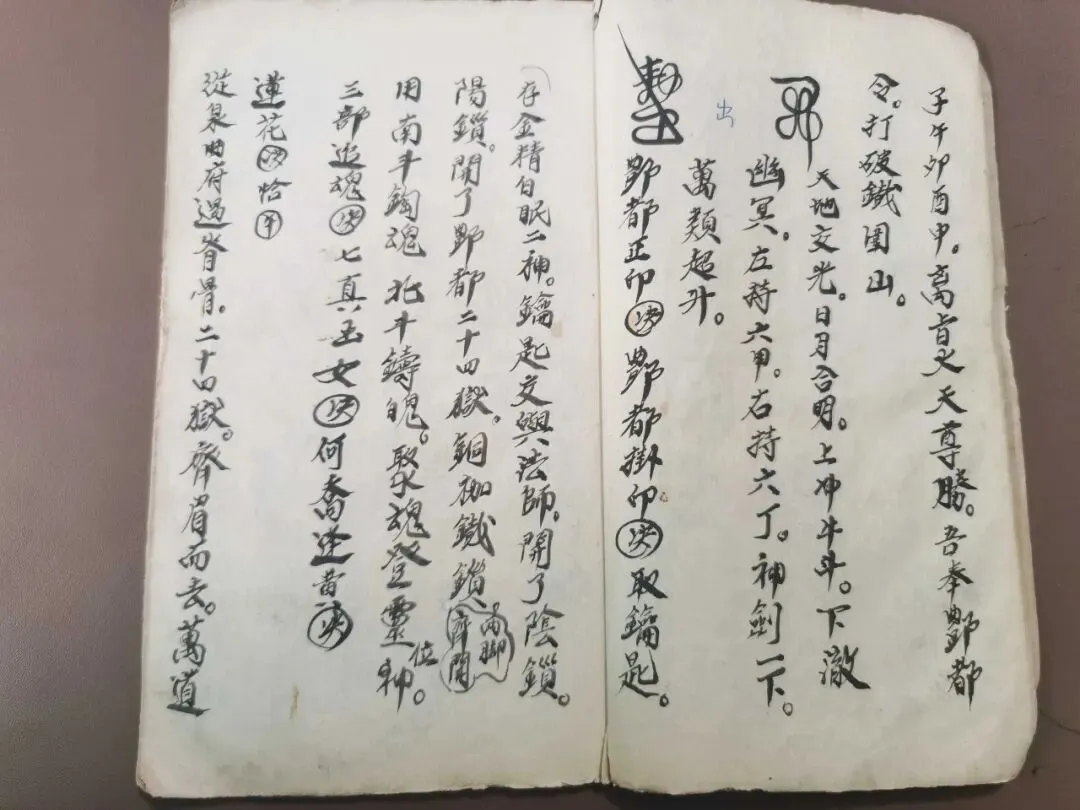 子午卯酉申。离旨火天尊勝。吾奉酆都
令。打破鐵圍山。
天地交光。日月合明。上冲牛斗。下澈
幽冥。左持六甲。右持六丁。神劍一下。
萬類超升。
出
酆都正卯決酆都掛卯。決取鑰匙。
存金精白眠二神。鑰匙交與法師。開了陰鎖。
陽鎖。開了酆都二十四獄。銅枷鐵鎖。兩脚齊開
用南斗鈎魂北斗鑄魄。聚魂登靈位神。
三部追魂決七真玉女決何喬逢昔決
蓮花決恰手
從泉曲府過脊骨。二十四獄。齊眉而去。萬道